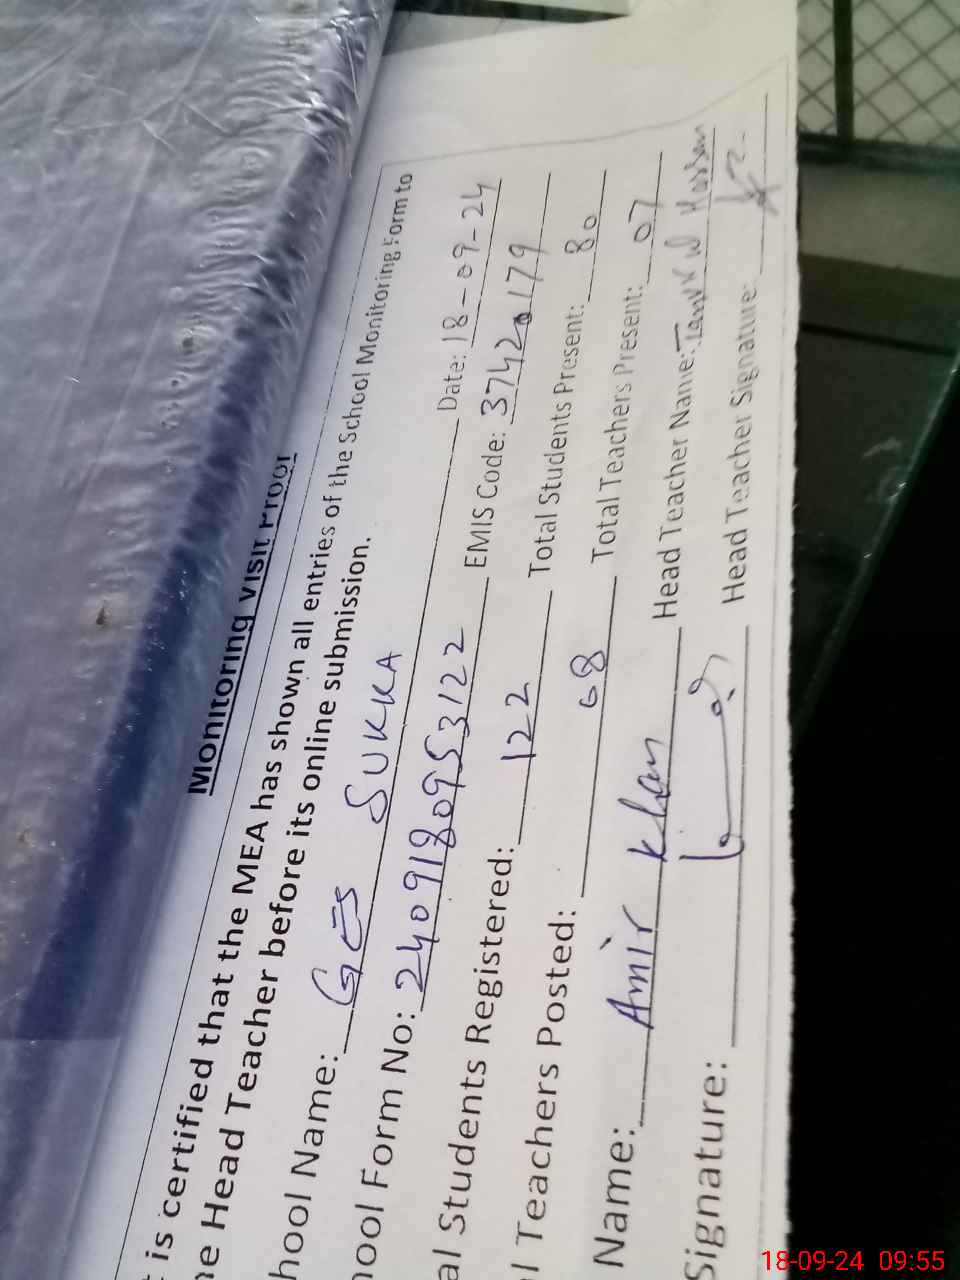 Monitoring Visit Proof
t is certified that the MEA has shown all entries of the School Monitoring Form to
he Head Teacher before its online submission.
hool Name: GES SUKKA Date: 18-09-24
hool Form No: 2409180953122 EMIS Code: 37420179
al Students Registered: 122 Total Students Present: 80
l Teachers Posted: 08 Total Teachers Present: 07
Name: Amir Khan Head Teacher Name: Hassan
Signature: Head Teacher Signature:
18-09-24 09:55